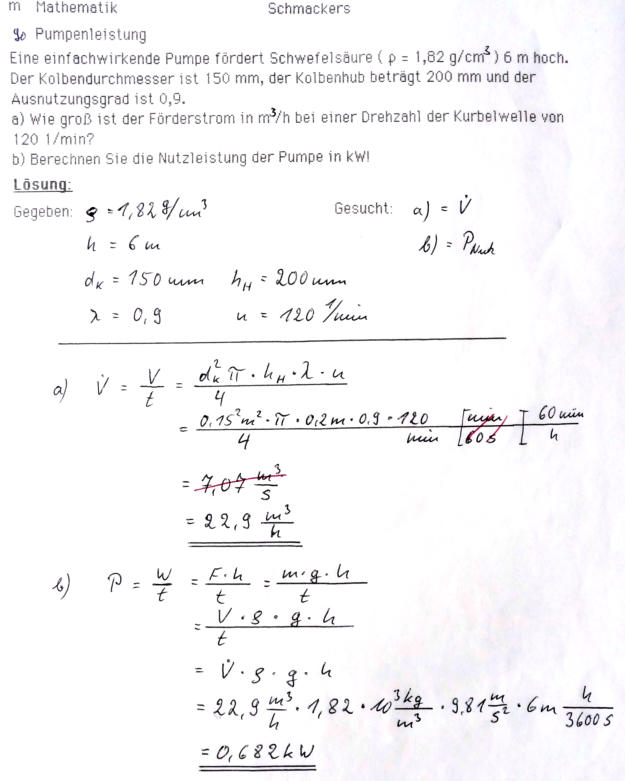 m Mathematik Schmackers
90 Pumpenleistung
Eine einfachwirkende Pumpe fördert Schwefelsäure ( ρ = 1,82 g/cm³ ) 6 m hoch.
Der Kolbendurchmesser ist 150 mm, der Kolbenhub beträgt 200 mm und der
Ausnutzungsgrad ist 0,9.
a) Wie groß ist der Förderstrom in m³/h bei einer Drehzahl der Kurbelwelle von
120 1/min?
b) Berechnen Sie die Nutzleistung der Pumpe in kW!
Lösung:
Gegeben: ρ = 1,82 g/cm³ Gesucht: a) = V̇
h = 6 m b) = P_Nutz
d_K = 150 mm h_H = 200 mm
λ = 0,9 n = 120 1/min
a) V̇ = V/t = d_K² π · h_H · λ · n / 4
= 0,15² m² · π · 0,2 m · 0,9 · 120 / 4 min [min / 60 s] 60 min / h
= 7,07 m³/s
= 22,9 m³/h
b) P = W/t = F·h / t = m·g·h / t
= V · ρ · g · h / t
= V̇ · ρ · g · h
= 22,9 m³/h · 1,82 · 10³ kg/m³ · 9,81 m/s² · 6 m h/3600 s
= 0,682 kW